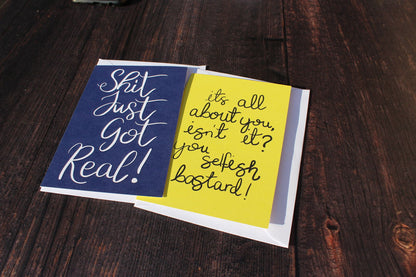 Shit
Just
Got
Real!
it's all
about you,
isn't it?
you selfish
bastard!